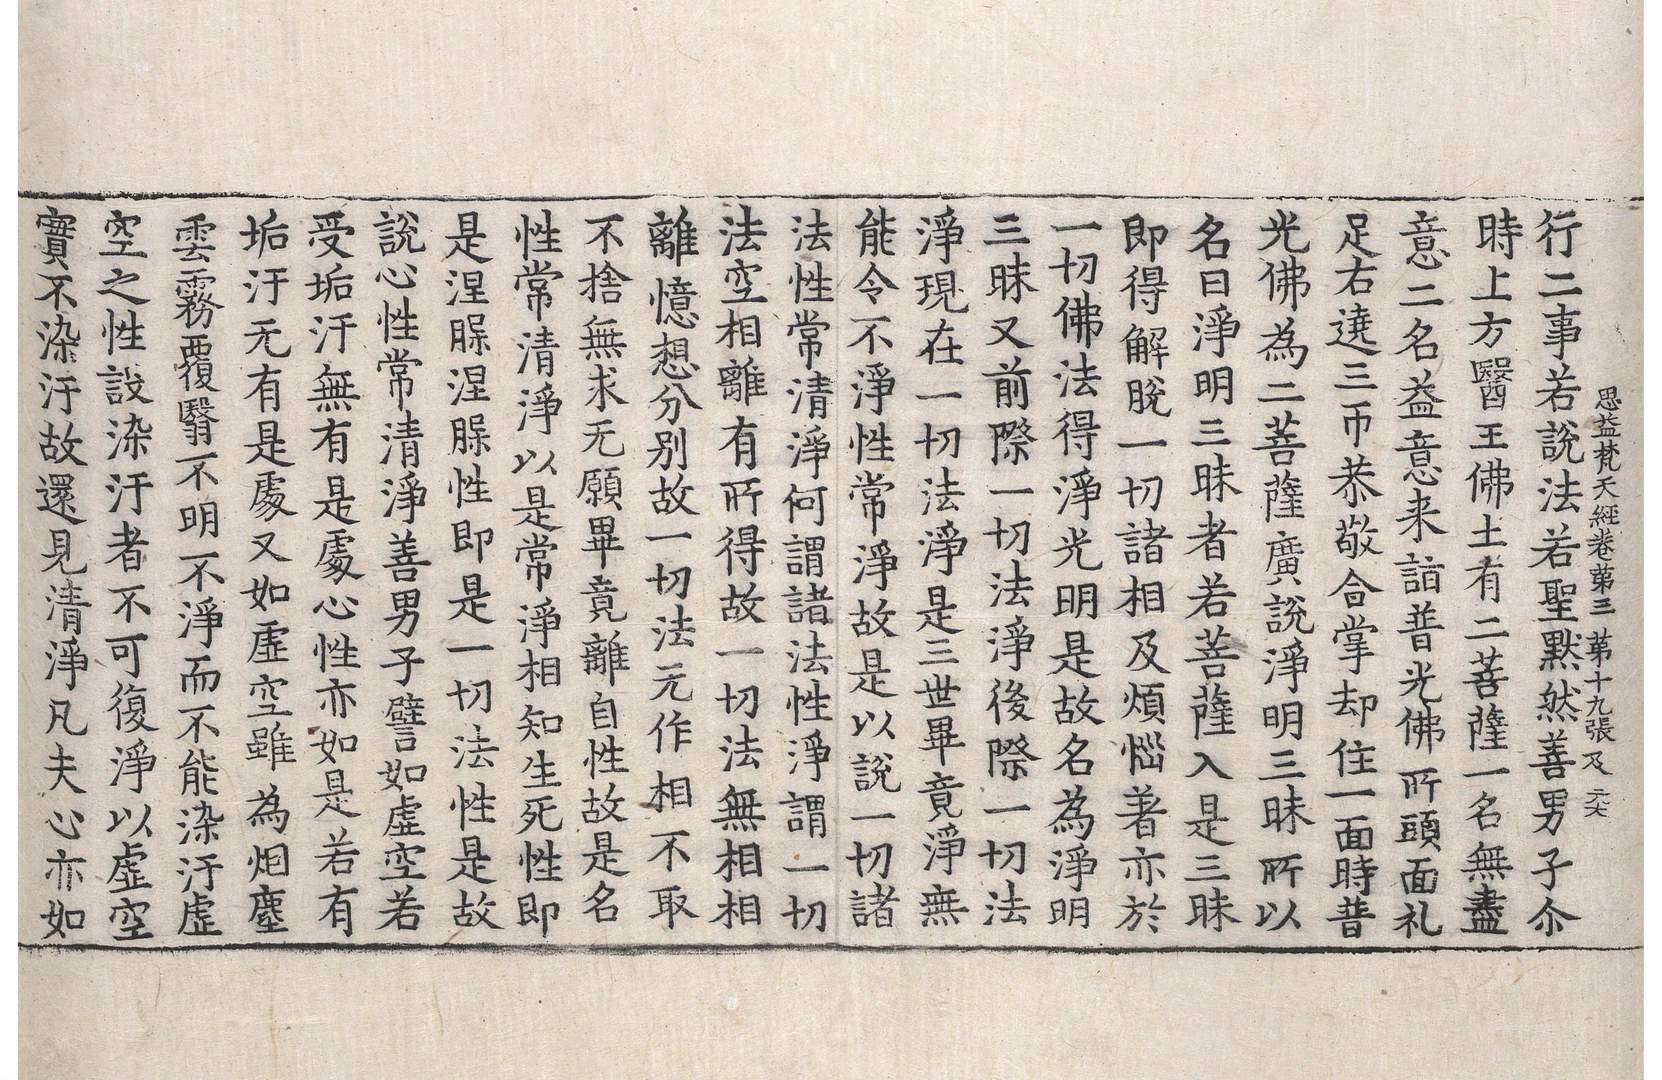 思益梵天經卷第三 第十九張 及
行二事若說法若聖默然善男子尒
時上方醫王佛土有二菩薩一名無盡
意二名益意来詣普光佛所頭面礼
足右遶三帀恭敬合掌却住一面時普
光佛為二菩薩廣說淨明三昧所以
名曰淨明三昧者若菩薩入是三昧
即得解脫一切諸相及煩惱著亦於
一切佛法得淨光明是故名為淨明
三昧又前際一切法淨後際一切法
淨現在一切法淨是三世畢竟淨無
能令不淨性常淨故是以說一切諸
法性常清淨何謂諸法性淨謂一切
法空相離有所得故一切法無相相
離憶想分别故一切法无作相不取
不捨無求无願畢竟離自性故是名
性常清淨以是常淨相知生死性即
是涅槃涅槃性即是一切法性是故
說心性常清淨善男子譬如虛空若
受垢汙無有是處心性亦如是若有
垢汙无有是處又如虛空雖為烟塵
雲霧覆翳不明不淨而不能染汙虛
空之性設染汙者不可復淨以虛空
實不染汙故還見清淨凡夫心亦如